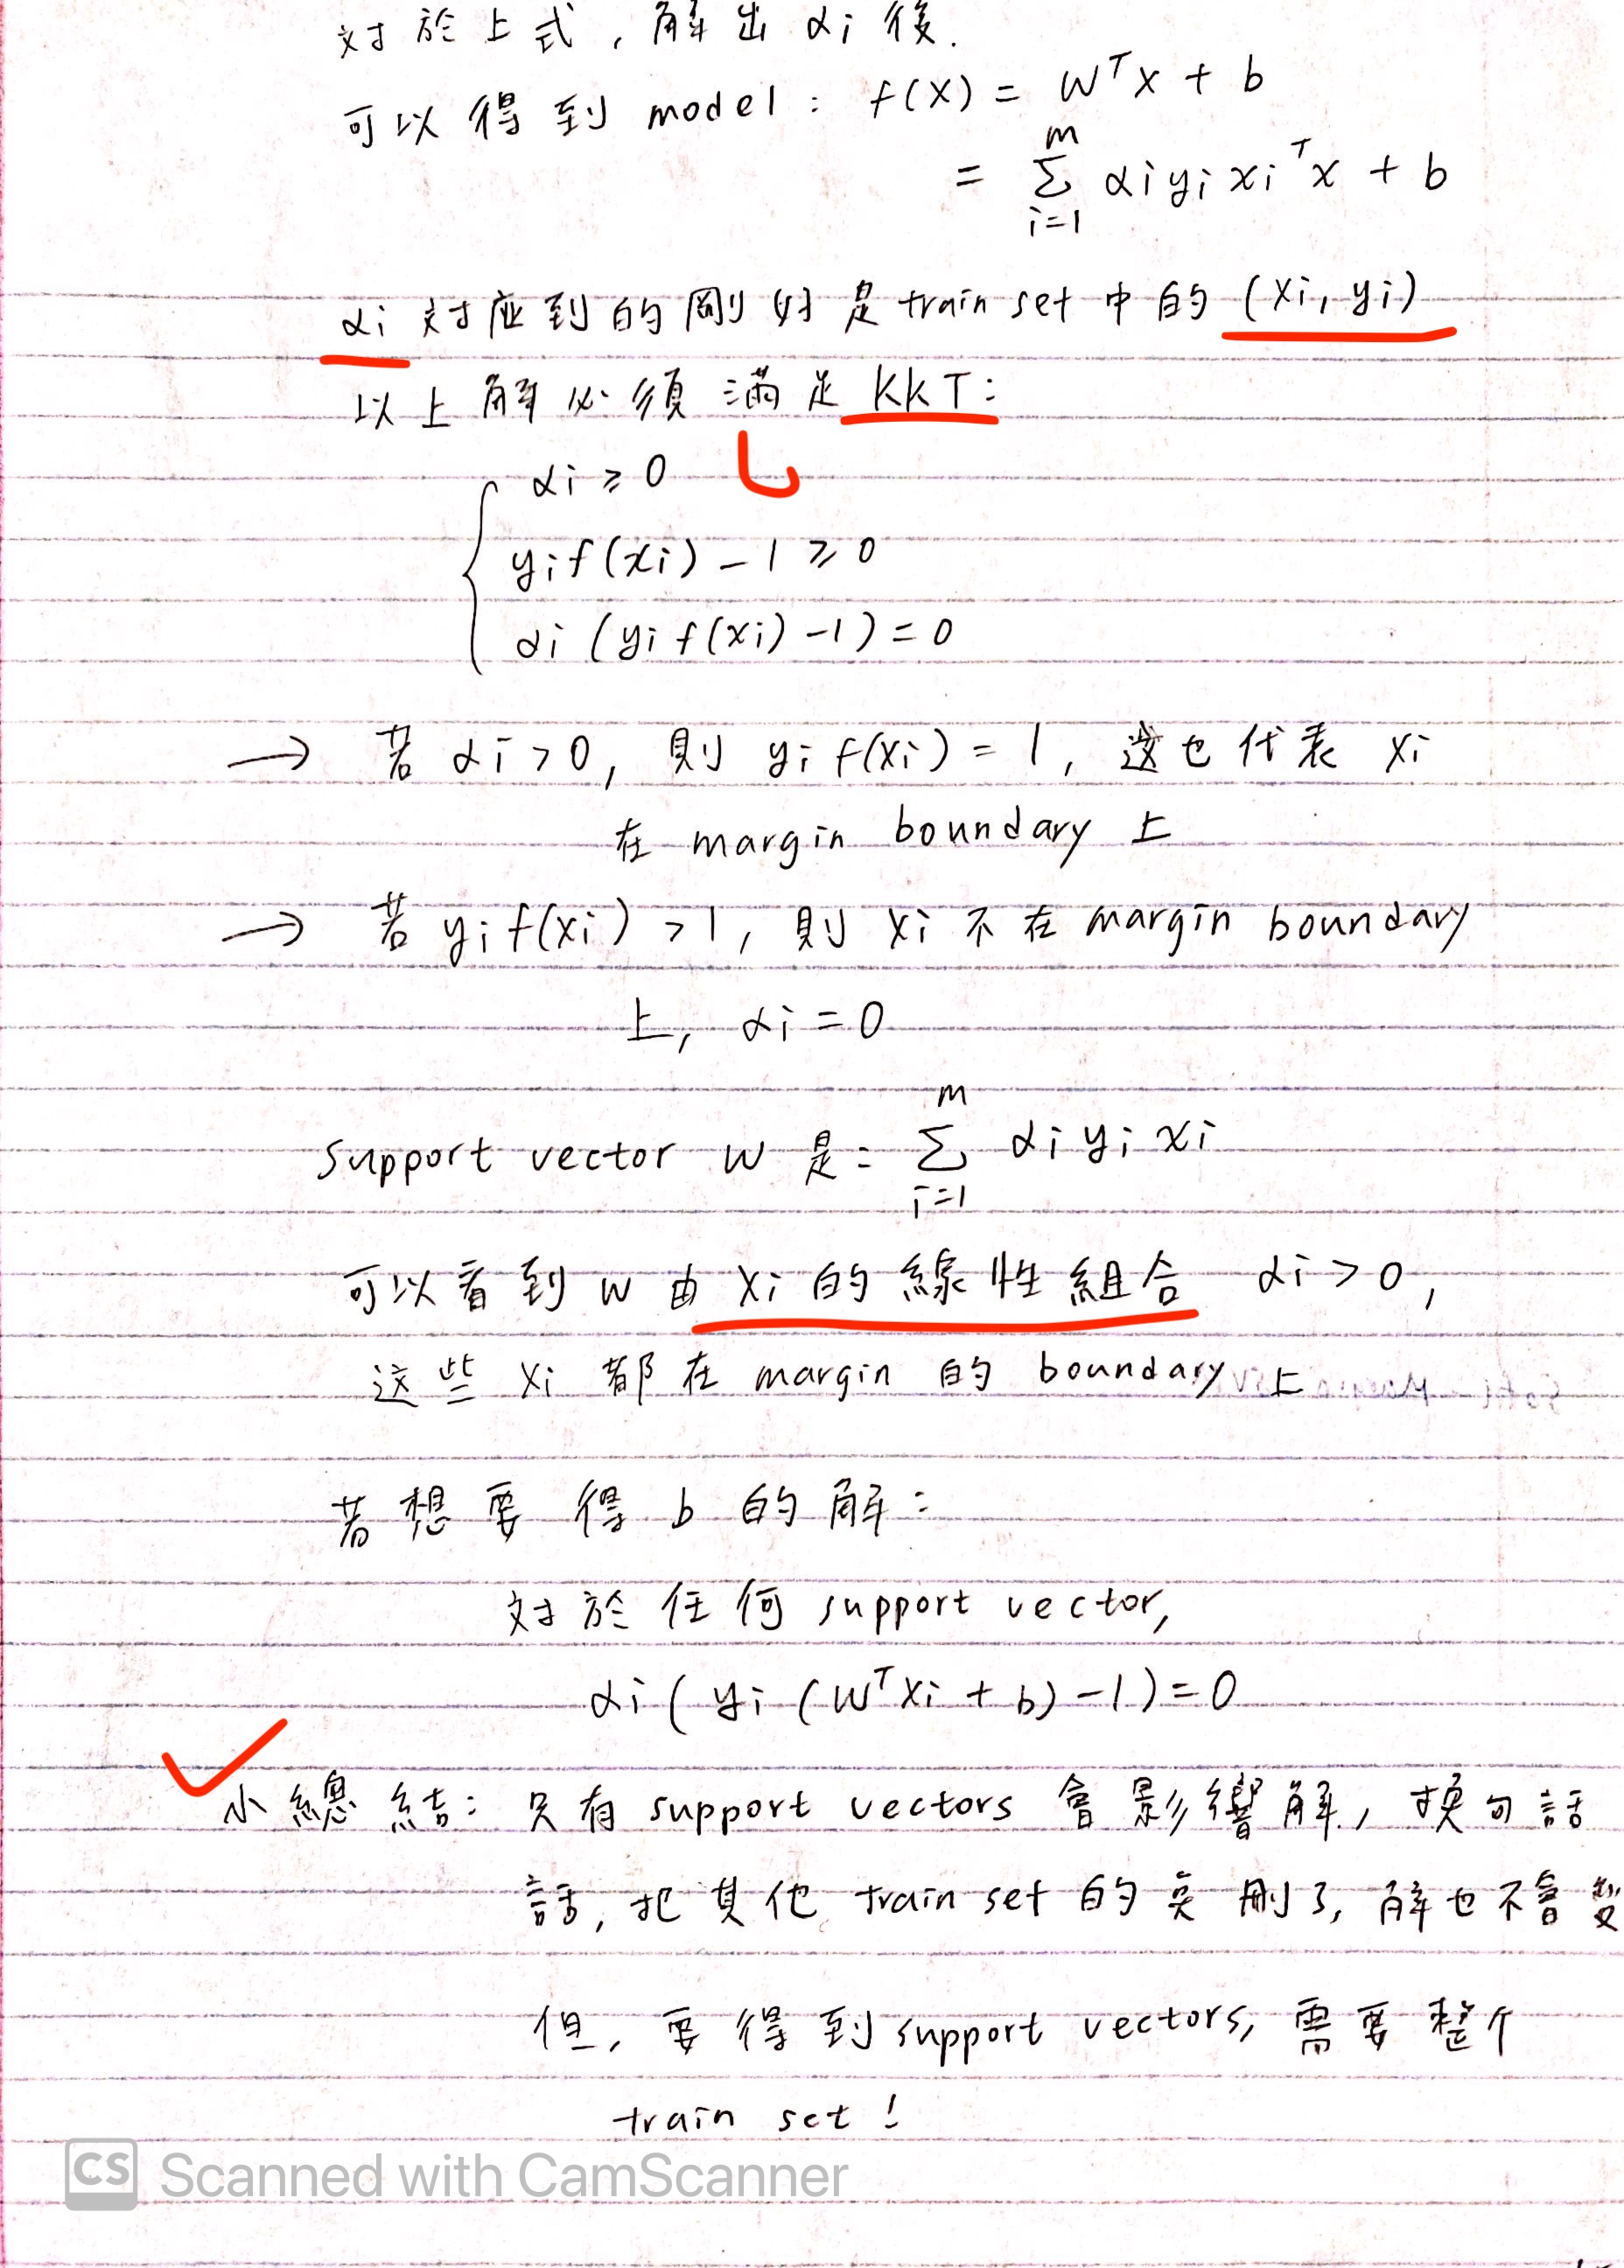 对於上式，解出 αi 後.
可以得到 model : f(x) = wᵀx + b
= Σ_{i=1}^{m} αi yi xiᵀx + b
αi 对应到的剛好是 train set 中的 (xi, yi)
以上解必須滿足 KKT:
αi ≥ 0
yif(xi) - 1 ≥ 0
αi (yi f(xi) - 1) = 0
→ 若 αi > 0, 則 yi f(xi) = 1, 這也代表 xi
在 margin boundary 上
→ 若 yif(xi) > 1, 則 xi 不在 margin boundary
上, αi = 0
support vector w 是: Σ_{i=1}^{m} αi yi xi
可以看到 w 由 xi 的線性組合 αi > 0,
这些 xi 都在 margin 的 boundary 上
若想要得 b 的解:
对於任何 support vector,
αi ( yi (wᵀxi + b) - 1) = 0
小總結: 只有 support vectors 會影響解, 换句話
話, 把其他 train set 的 刪了, 解也不會變
但, 要得到 support vectors, 需要整个
train set !
CS Scanned with CamScanner